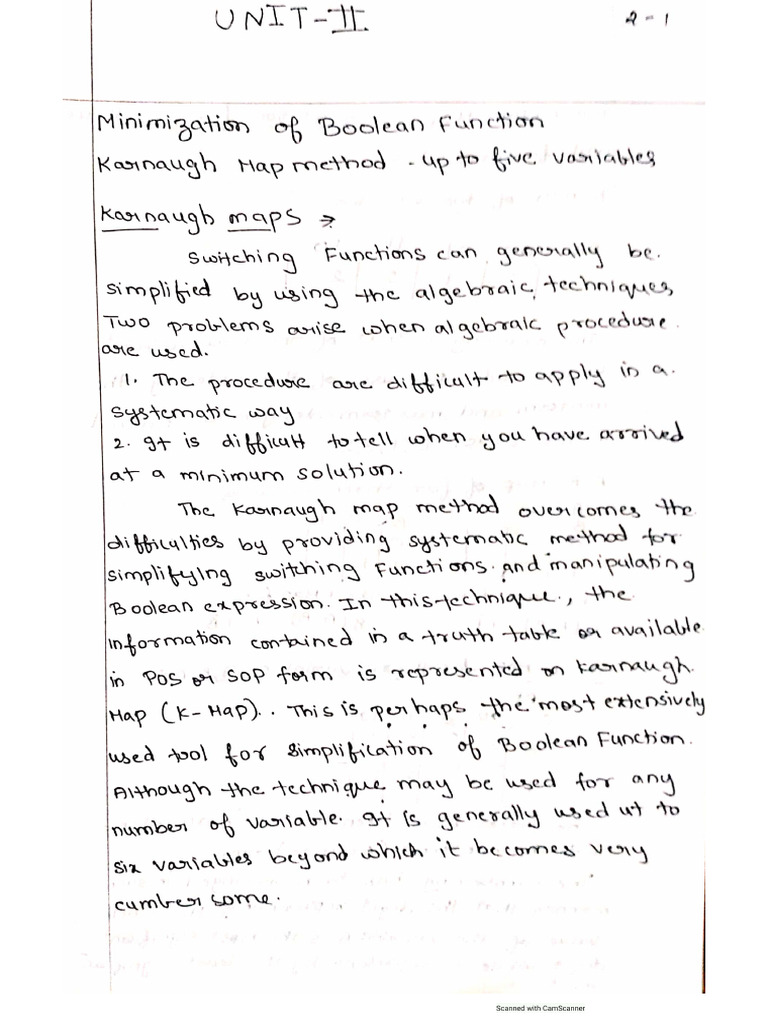 UNIT-II
2-1
Minimization of Boolean Function
Karnaugh Map method - up to five variables
Karnaugh maps ⇒
Switching Functions can generally be.
simplified by using the algebraic techniques,
Two problems arise when algebraic procedure.
are used.
1. The procedure are difficult to apply in a.
systematic way
2. It is difficult to tell when you have arrived
at a minimum solution.
The Karnaugh map method overcomes the
difficulties by providing systematic method for
simplifying switching Functions. And manipulating
Boolean expression. In this technique, the
information contained in a truth table or available
in POS or SOP form is represented on Karnaugh.
Map (K-Map). . This is perhaps the most extensively
used tool for simplification of Boolean Function.
Although the technique may be used for any
number of variable. It is generally used ut to
six variables beyond which it becomes very
cumber some.
Scanned with CamScanner